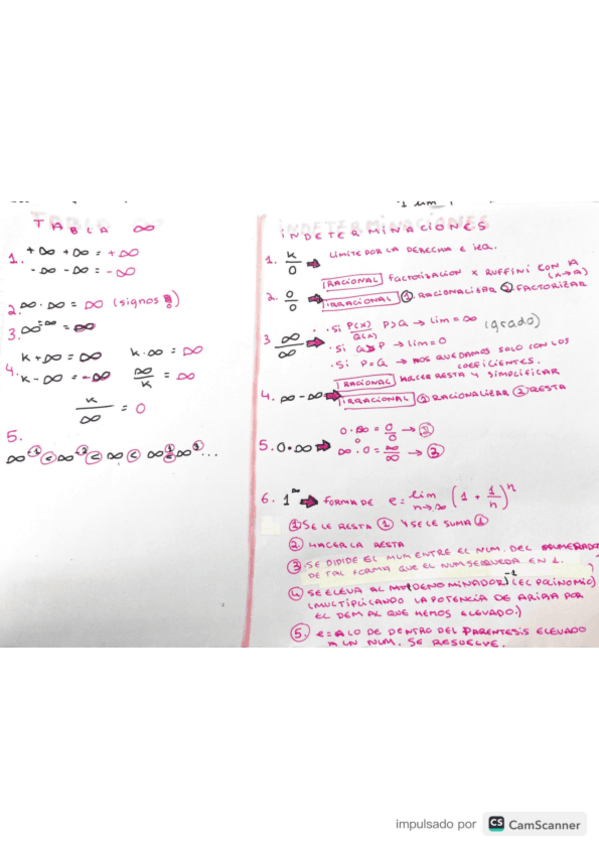 TABLA ∞
1. +∞ +∞ = +∞
-∞ -∞ = -∞
2. ∞·∞ = ∞ (signos !)
3. ∞^∞ = ∞
4. k+∞ = ∞ k·∞ = ∞
k-∞ = -∞ ∞/k = ∞
k/∞ = 0
5.
INDETERMINACIONES
1. k/0 → LIMITE POR LA DERECHA E IZQ.
2. 0/0 → RACIONAL FACTORISACION X RUFFINI CON A (x→a)
IRRACIONAL ① RACIONALIZAR ② FACTORIZAR
3 ∞/∞ → · Si P(x)/Q(x) P>Q → lim = ∞ (grado)
· Si Q>P → lim = 0
· Si P=Q → NOS QUEDAMOS SOLO CON LOS COEFICIENTES.
4. ∞-∞ → RACIONAL HACER RESTA Y SIMPLIFICAR
IRRACIONAL ① RACIONALIZAR ② RESTA
5. 0·∞ → 0·∞ = 0/0 → ②
∞·0 = ∞/∞ → ③
6. 1^∞ → FORMA DE e = lim n→∞ (1 + 1/n)^n
① SE LE RESTA ① Y SE LE SUMA ①
② HACER LA RESTA
③ SE DIDIDE EL NUM ENTRE EL NUM. DEL NUMERADOR
DE TAL FORMA QUE EL NUM SE QUEDA EN 1.
④ SE ELEVA AL DENOMINADOR^-1 (EL POLINOMIO)
(MULTIPLICANDO LA POTENCIA DE ARIBA POR
EL DEM AL QUE HEMOS ELEVADO.)
⑤ e = A LO DE DENTRO DEL PARENTESIS ELEVADO
A UN NUM. SE RESUELVE.
impulsado por CS CamScanner